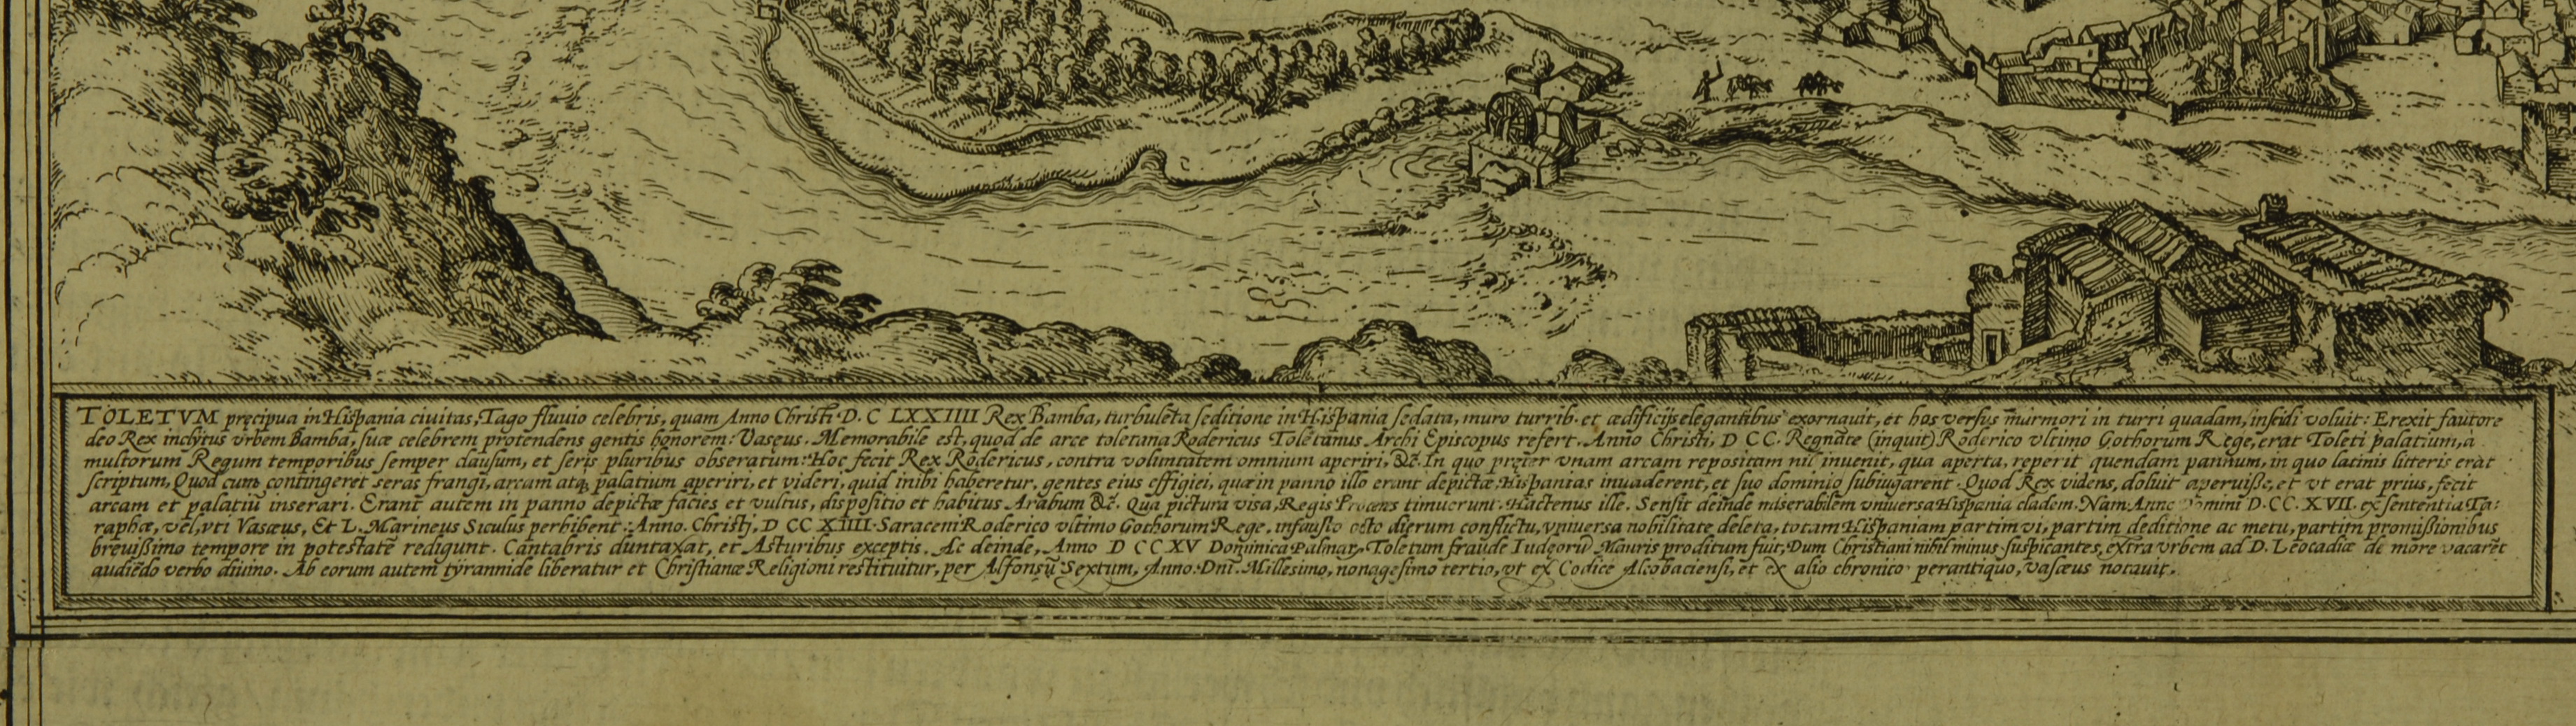 TOLETVM pręcipua in Hispania ciuitas, Tago fluuio celebris, quam Anno Christi D.C LXXIIII Rex Bamba, turbulēta seditione in Hispania sedata, muro turrib. et ædificijs elegantibus exornauit, et hos versus murmori in turri quadam, insidi voluit: Erexit fautore
deo Rex inclytus vrbem Bamba, suæ celebrem protendens gentis honorem: Vasęus. Memorabile est, quod de arce toletana Rodericus Toletanus Archi Episcopus refert. Anno Christi, D CC. Regnāte (inquit) Roderico vltimo Gothorum Rege, erat Toleti palatium, a
multorum Regum temporibus semper clausum, et seris pluribus obseratum: Hoc fecit Rex Rodericus, contra voluntatem omnium aperiri, &c. In quo pręter vnam arcam repositam nil inuenit, qua aperta, reperit quendam pannum, in quo latinis litteris erat
scriptum, Quod cum contingeret seras frangi, arcam atq palatium aperiri, et videri, quid inibi haberetur, gentes eius effigiei, quæ in panno illo erant depictæ, Hispanias inuaderent, et suo dominio subiugarent. Quod Rex videns, doluit aperuisse, et vt erat prius, fecit
arcam et palatiū inserari. Erant autem in panno depictæ facies et vultus, dispositio et habitus Arabum &c. Qua pictura visa, Regis timuerunt. Hactenus ille. Sensit deinde miserabilem vniuersa Hispania cladem. Nam Anno D.CC.XVII. ex sententia Ta:
raphæ, vel, vti Vasæus, Et L. Marineus Siculus perhibent: Anno. Christi, D CC XIIII. Saraceni Roderico vltimo Gothorum Rege, infausto octo dierum conflictu, vniuersa nobilitate deleta, totam Hispaniam partim vi, partim deditione ac metu, partim promissionibus
breuissimo tempore in potestatē redigunt. Cantabris duntaxat, et Asturibus exceptis. Ac deinde, Anno D CC XV Dominica Palmar, Toletum fraude Iudęorū Mauris proditum fuit, Dum Christiani nihil minus suspicantes, extra vrbem ad D. Leocadiæ de more vacarēt
audiēdo verbo diuino. Ab eorum autem tyrannide liberatur et Christianæ Religioni restituitur, per Alfonsū Sextum, Anno. Dnī. Millesimo, nonagesimo tertio, vt ex Codice Alcobaciensi, et ex alio chronico perantiquo, vasæus notauit.